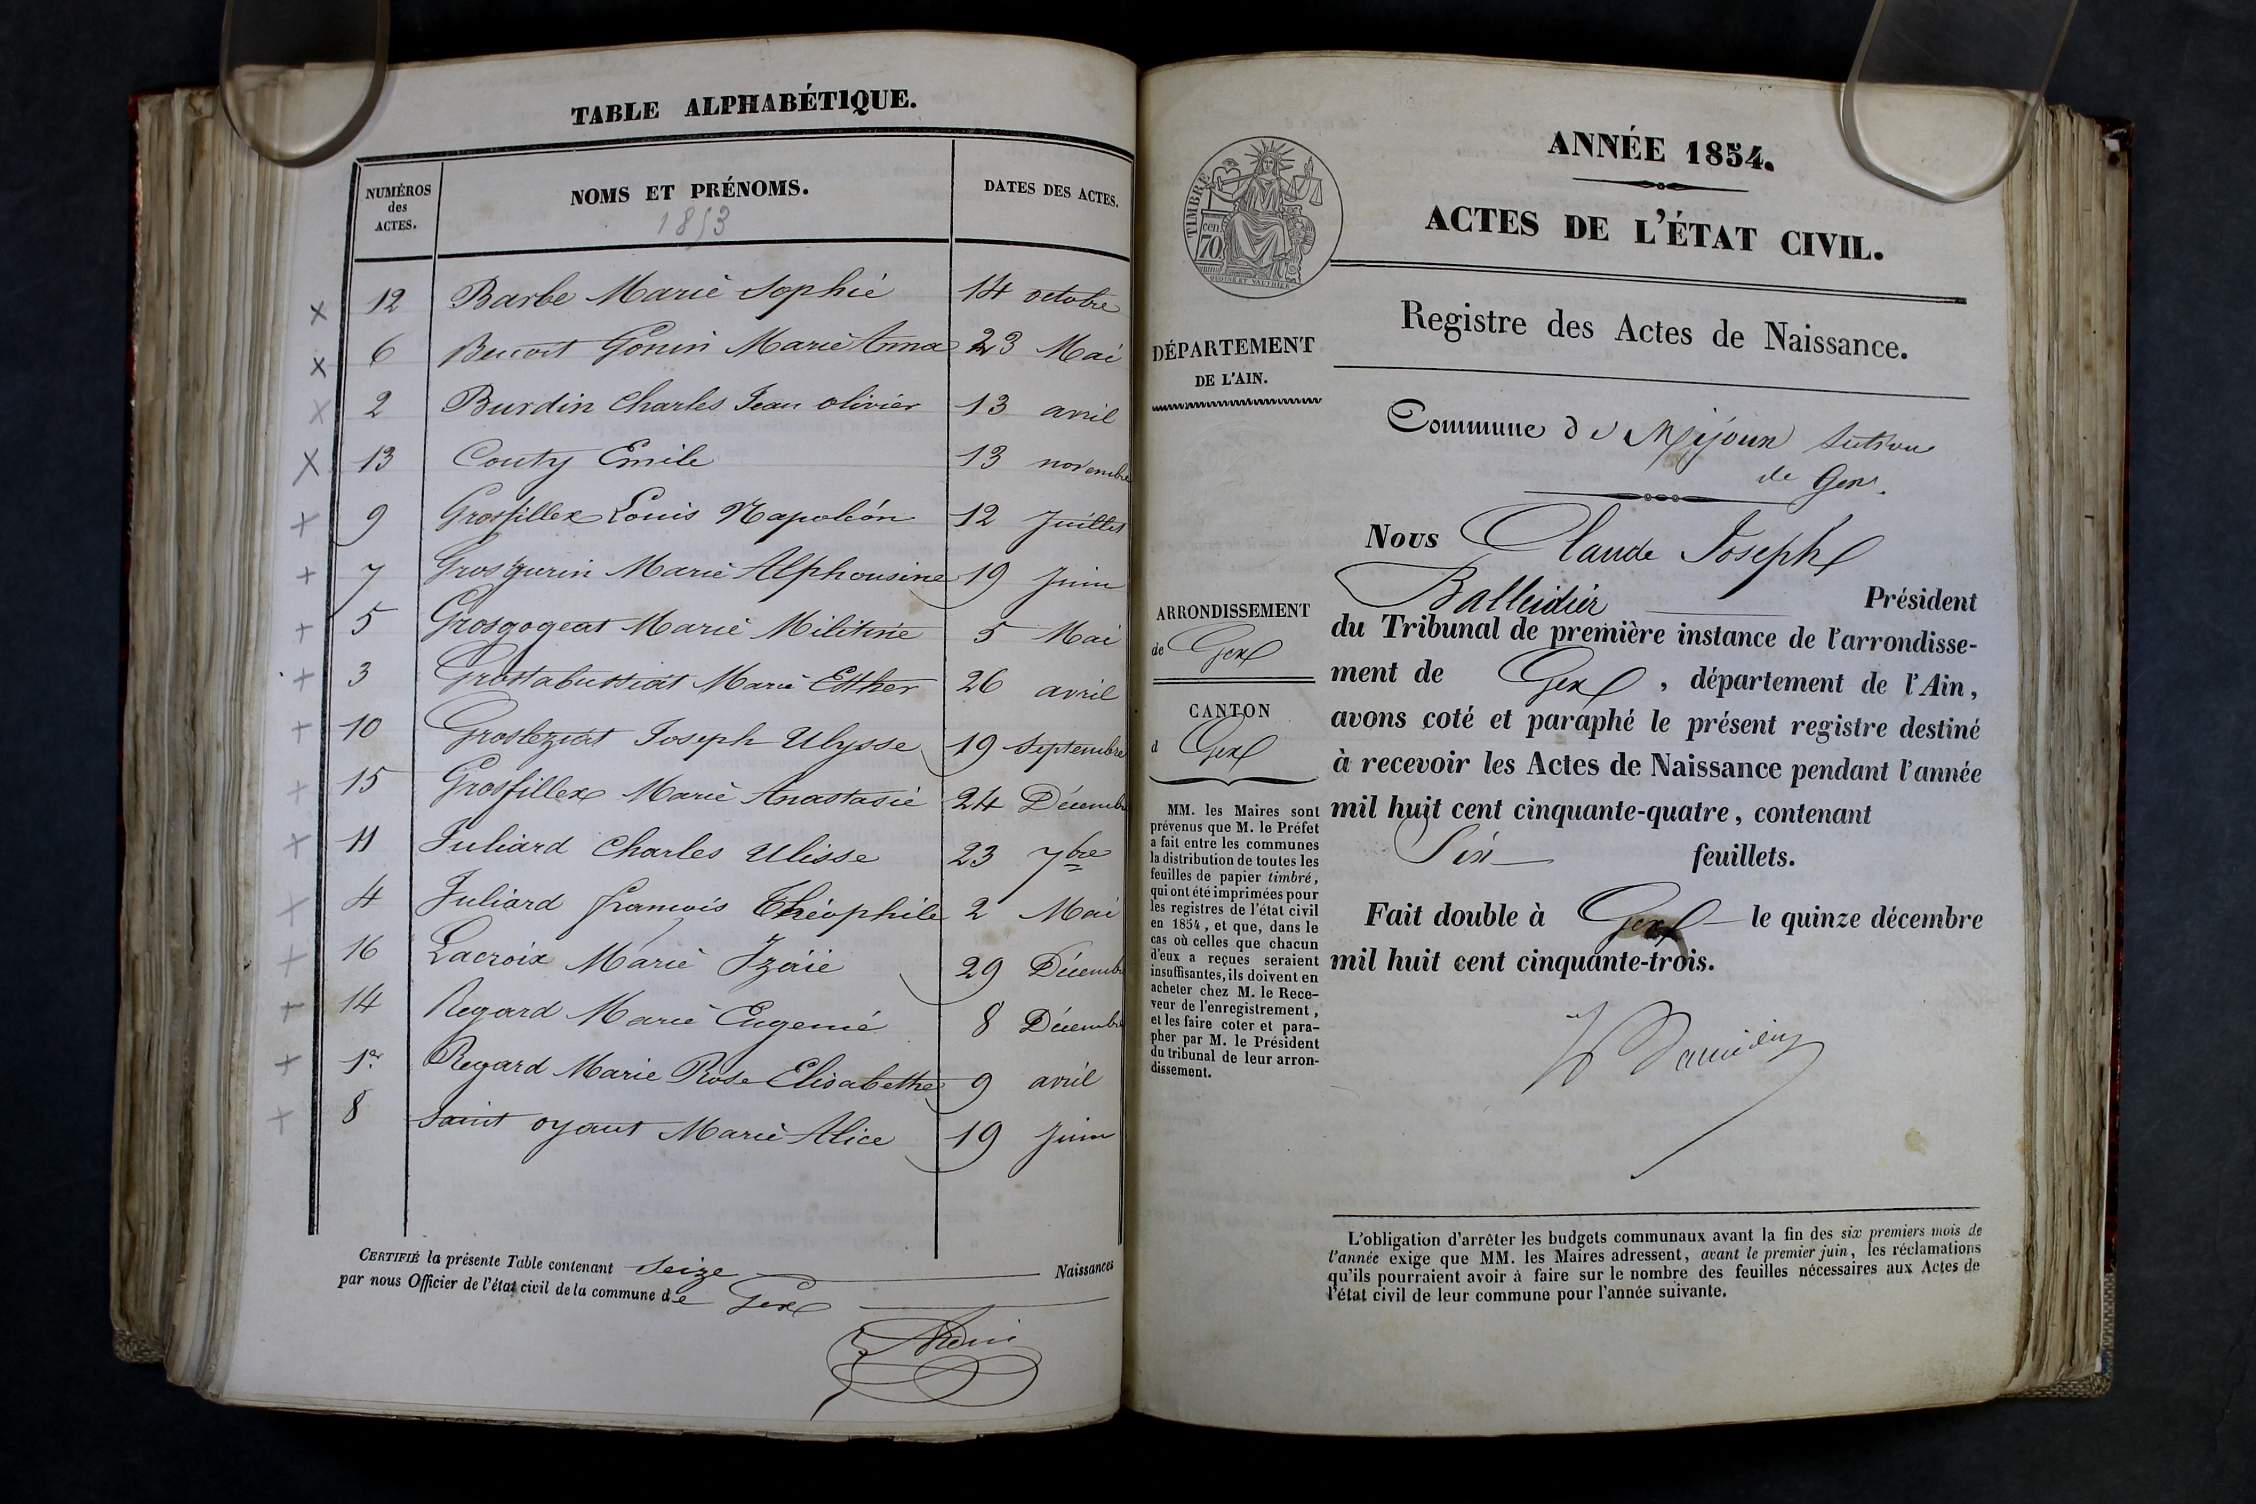 TABLE ALPHABÉTIQUE.
NUMÉROS des ACTES. NOMS ET PRÉNOMS. DATES DES ACTES.
1853
x 12 Barbe Marie Sophie 14 octobre
x 6 Benoit Gonin Marie Anna 23 Mai
x 2 Burdin Charles Jean olivier 13 avril
x 13 Couty Emile 13 novembre
+ 9 Grosfillex Louis Napoléon 12 Juillet
+ 7 Gros gurin Marie Alphonsine 19 Juin
+ 5 Grosgogeat Marie 5 Mai
+ 3 Marie Esther 26 avril
+ 10 Joseph Ulysse 19 Septembre
+ 15 Grosfillex Marie Anastasie 24 Décembre
+ 11 Juliard Charles Ulisse 23 7bre
+ 4 Juliard françois Théophile 2 Mai
+ 16 Lacroix Marie Izaïe 29 Décembre
+ 14 Regard Marie Eugenie 8 Décembre
+ 1er Regard Marie Rose Elisabethe 9 avril
+ 8 Saint oyant Marie Alice 19 Juin
CERTIFIÉ la présente Table contenant Seize Naissances
par nous Officier de l'état civil de la commune de Gex
ANNÉE 1854.
ACTES DE L'ÉTAT CIVIL.
TIMBRE
70 cen
Registre des Actes de Naissance.
DÉPARTEMENT
DE L'AIN.
Commune de Mijoux
de Gex.
Nous Claude Joseph
Balleidier Président
du Tribunal de première instance de l'arrondisse-
ment de Gex, département de l'Ain,
avons coté et paraphé le présent registre destiné
à recevoir les Actes de Naissance pendant l'année
mil huit cent cinquante-quatre, contenant
Six feuillets.
Fait double à Gex le quinze décembre
mil huit cent cinquante-trois.
ARRONDISSEMENT
de Gex
CANTON
d Gex
MM. les Maires sont
prévenus que M. le Préfet
a fait entre les communes
la distribution de toutes les
feuilles de papier timbré,
qui ont été imprimées pour
les registres de l'état civil
en 1854, et que, dans le
cas où celles que chacun
d'eux a reçues seraient
insuffisantes, ils doivent en
acheter chez M. le Rece-
veur de l'enregistrement,
et les faire coter et para-
pher par M. le Président
du tribunal de leur arron-
dissement.
L'obligation d'arrêter les budgets communaux avant la fin des six premiers mois de
l'année exige que MM. les Maires adressent, avant le premier juin, les réclamations
qu'ils pourraient avoir à faire sur le nombre des feuilles nécessaires aux Actes de
l'état civil de leur commune pour l'année suivante.